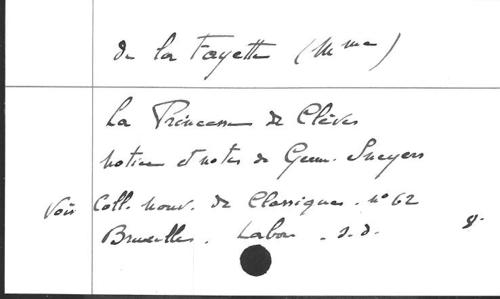 de la Fayette (Mme)
La Princesse de Clèves
notice et notes de Germ. Sneyers
voir Coll. nouv. de Classiques. n° 62
Bruxelles. Labor. s.d. 8.